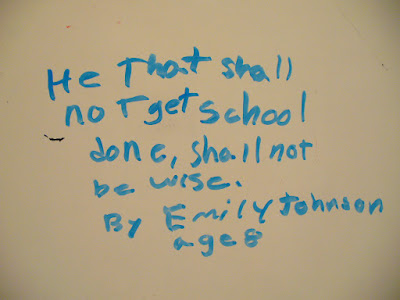 He That shall
not get school
done, shall not
be wise.
By Emily Johnson
age 8